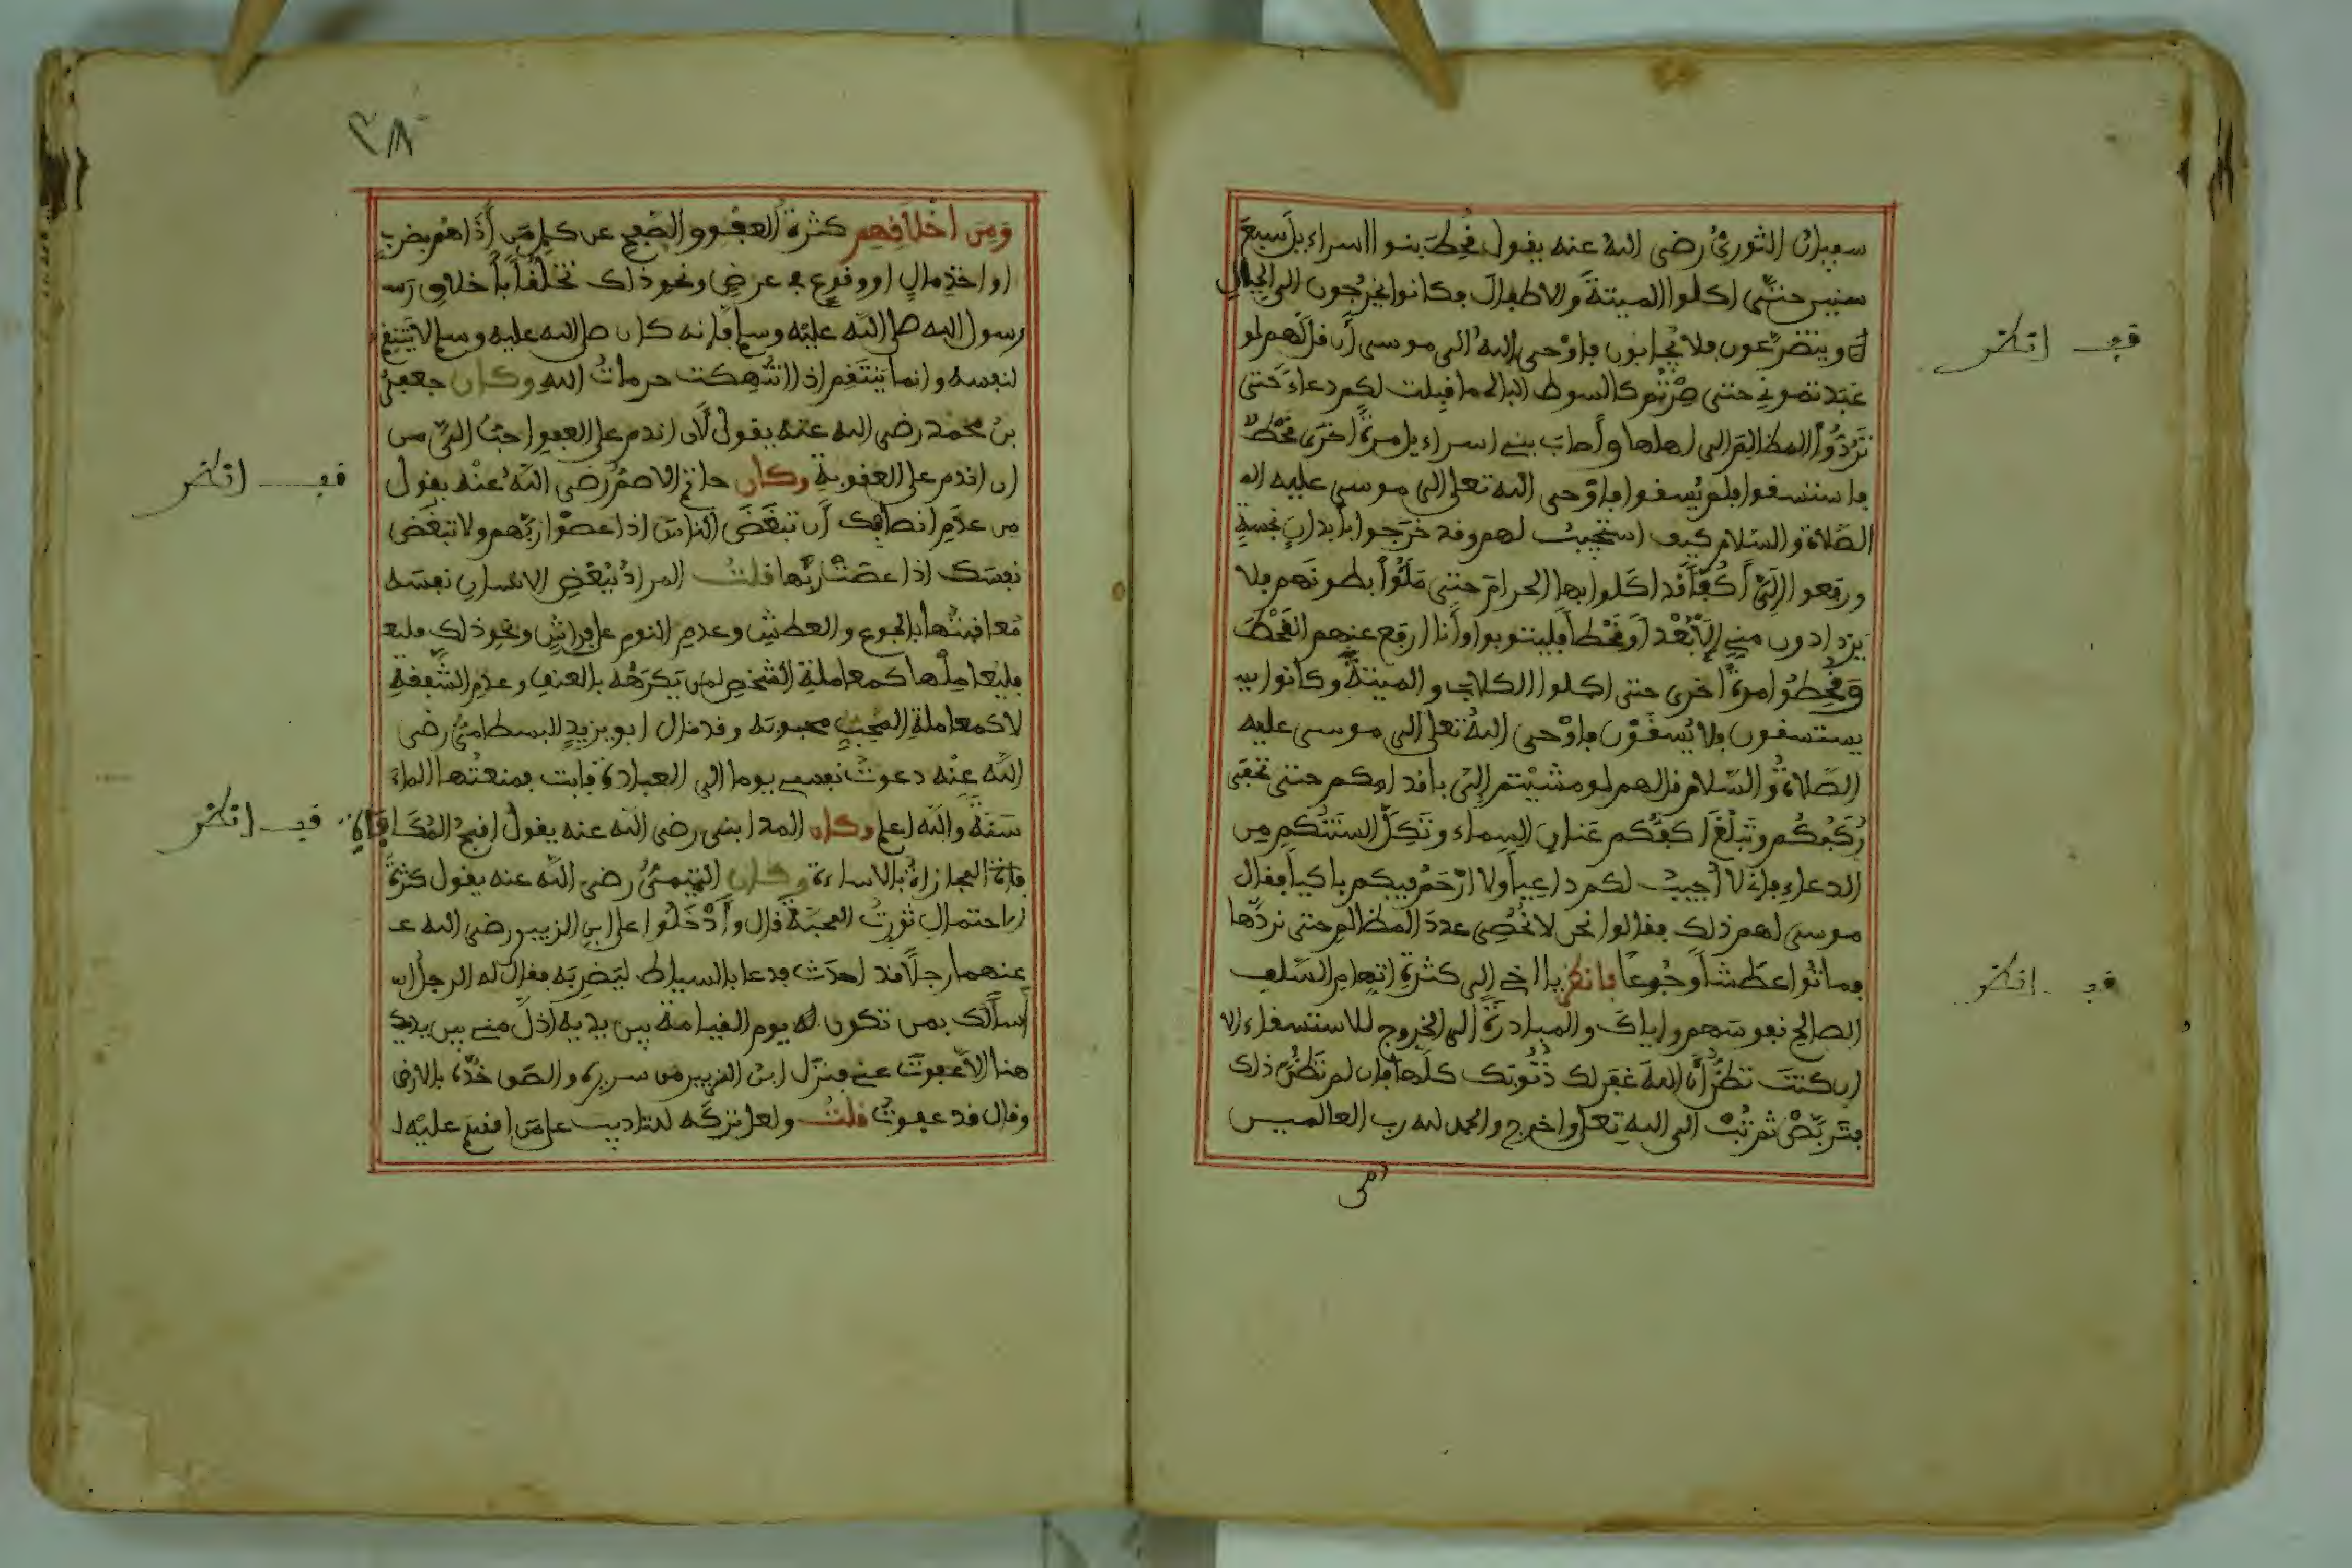 سفيان الثوري رضي الله عنه يقول قُحِطَ بنوا اسراءيل سبع
سنين حتى اكلوا الميتة والاطفال فكانوا يخرجون الى الجبال
ويتضرعون فلا يُجابون فاوحى الله الى موسى أن قل لهم لو
عبدتموني حتى صرتم كالسوط البالي ما قبلت لكم دعاء حتى
تَرُدُّوا المظالم الى اهلها وأصاب بني اسراءيل مرة اخرى قحط
فاستسقوا فلم يُسقوا فاوحى الله تعلى الى موسى عليه الـ
الصلاة والسلام كيف استجيب لهم وقد خرجوا بأبدان نجسة
ورفعوا إليّ أكُفًّا قد اكلوا بها الحرام حتى مَلَئُوا بطونهم فلا
يزدادون مني إلا بُعْدا أو قحطا فليتوبوا وأنا ارفع عنهم القحط
وقُحِطُوا مرة اخرى حتى اكلوا الكلاب والميتة وكانوا يـ
يستسقون فلا يُسقَوْن فاوحى الله تعلى الى موسى عليه
الصلاة والسلام قل لهم لو مشيتم إليّ باقدامكم حتى تحفى
رُكَبُكُم وتَبْلُغَ اكفُّكم عَنان السماء وتَكِلَّ السنتكم من
الدعاء فإني لا أجيب لكم داعيا ولا ارْحَمُ فيكم باكيا فقال
موسى لهم ذلك فقالوا نحن لا نُحْصِى عدد المظالم حتى نردها
فماتوا عطشا وجُوعا فانظر يا اخي إلى كثرة اتهام السلف
الصالح نفوسهم واياك والمبادرة إلى الخروج للاستسقاء الا
ان كنت تظن أن الله غفر لك ذُنُوبَك كلها فإن لم تظن ذلك
فتربّصْ ثم تُبْ الى الله تعلى واخرج والحمد لله رب العالمين
ومن
قف انظر
قف انظر
٣٨
ومن اخلاقهم كثرة العفو والصفح عن كل من أذاهم بضرب
او اخذ مال او وقوع في عرض ونحو ذلك تخلقا بأخلاق رسـ
رسول الله صلى الله عليه وسلم فإنه كان صلى الله عليه وسلم لا ينتقم
لنفسه وانما ينتقم اذا انتُهكت حرمات الله وكان جعفر
بن محمد رضي الله عنه يقول لأن اندم على العفو احب إلي من
ان اندم على العقوبة وكان حاتم الاصم رضي الله عنه يقول
من عدم انصافك أن تبغض الناس اذا عصوا ربهم ولا تبغض
نفسك اذا عصت ربها قلت المراد ببغض الانسان نفسه
مُعاقبتُها بالجوع والعطش وعدم النوم على فراش ونحو ذلك فليعـ
فليعاملها كمعاملة الشخص لمن يكرهه بالعنف وعدم الشفقة
لا كمعاملة المحب محبوبه وقد قال ابو يزيد البسطامي رضي
الله عنه دعوت نفسي يوما الى العبادة فابت فمنعتُها الماء
سنة والله اعلم وكان المدايني رضي الله عنه يقول اقبح المُكَافاة
المجازاة بالاساءة وكان التيمي رضي الله عنه يقول كثرة
الاحتمال تورث المحبة قال وأدْخَلُوا على ابن الزبير رضي الله عـ
عنهما رجلا قد احدث فدعا بالسياط ليضربه فقال له الرجل
أسألك بمن تكون له يوم القيامة بين يديه اذل مني بين يديك
هنا إلا عفوت عني فنزل ابن الزبير من سريره والصق خدّه بالارض
وقال قد عفوت قلت ولعل تركه لتاديب على من افتى عليه لـ
قف انظر
قف انظر